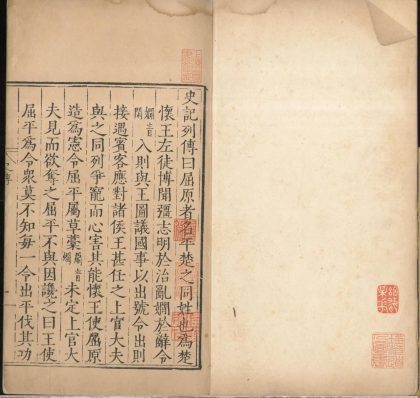 史記列傳曰屈原者名平楚之同姓也爲楚
懷王左徒博聞彊志明於治亂嫺於辭令
嫺音
閑
入則與王圖議國事以出號令出則
接遇賓客應對諸侯王甚任之上官大夫
與之同列爭寵而心害其能懷王使屈原
造爲憲令屈平屬草藁
屬音
未定上官大
夫見而欲奪之屈平不與因讒之曰王使
屈平爲令衆莫不知每一令出平伐其功